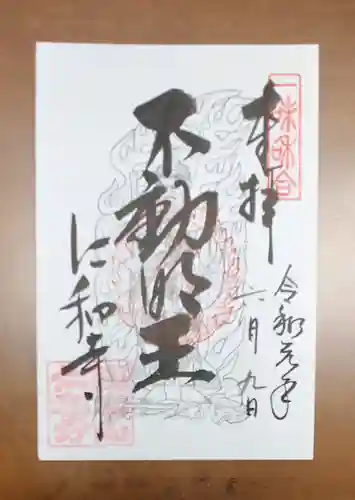 奉拝
一味和合
令和元年
六月九日
不動明王
仁和寺